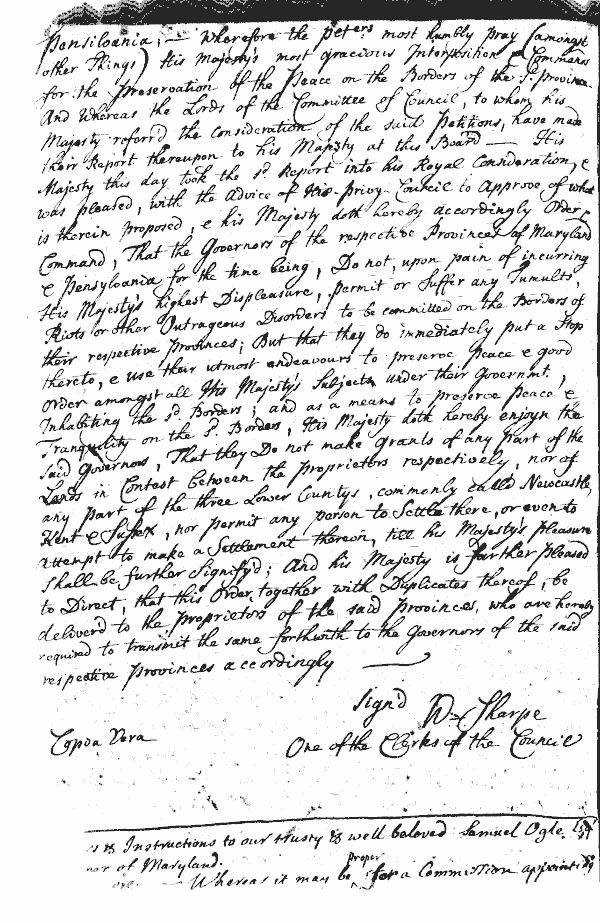 Pensilvania; — Wherefore the Peters most humbly pray (amongst
other Things) His Majesty's most gracious Interposition & Commans
for the Preservation of the Peace on the Borders of the Sd. Province
And Whereas the Lords of the Committee of Council, to whom his
Majesty referr'd the Consideration of the said Petitions, have made
their Report thereupon to his Majesty at this Board — His
Majesty this day took the Sd. Report into his Royal Consideration, &
was pleased, with the Advice of His Privy-Council to Approve of what
is therein proposed, & his Majesty doth hereby accordingly Order &
Command, That the Governors of the respective Provinces of Maryland
& Pensylvania for the time being, Do not, upon pain of incurring
His Majesty's highest Displeasure, permit or Suffer any Tumults,
Riots or other Outrageous Disorders to be committed on the Borders of
their respective Provinces; But that they do immediately put a Stop
thereto, & use their utmost endeavours to preserve Peace & good
Order amongst all His Majesty's Subjects under their Governmt.,
Inhabiting the Sd. Borders; and as a means to preserve Peace &
Tranquility on the Sd. Borders, His Majesty doth hereby enjoyn the
said Governors, That they Do not make grants of any part of the
Lands in Contest between the Proprietors respectively, nor of
any part of the three Lower Countys, commonly called Newcastle,
Kent & Sussex, nor permit any person to Settle there, or even to
attempt to make a Settlement thereon, till his Majesty's pleasure
Shall be further Signify'd; And his Majesty is further pleased
to Direct, that this Order, together with Duplicates thereof, be
deliverd to the proprietors of the said Provinces, who are hereby
required to transmit the same forthwith to the Governors of the said
respective Provinces accordingly
Sign'd Wm Sharpe
Copia Vera
One of the Clerks of the Council
& Instructions to our trusty & well beloved Samuel Ogle.
nor of Maryland.
proper
— Whereas it may be for a Commission appointing